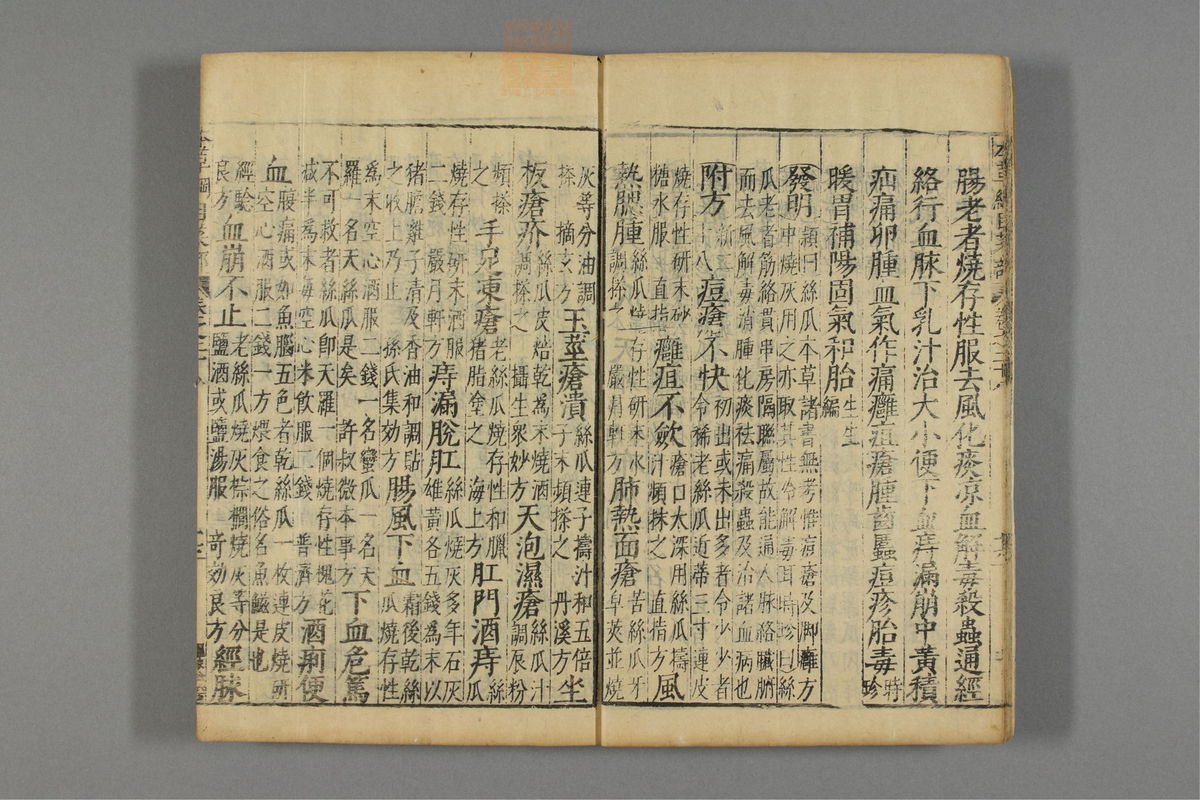 腸老者燒存性服去風化痰涼血解毒殺蟲通經
絡行血脉下乳汁治大小便下血痔漏崩中黃積
疝痛卵腫血氣作痛癰疽瘡腫齒䘌痘疹胎毒時珍
暖胃補陽固氣和胎生生編
發明頴曰絲瓜本草諸書無考惟痘瘡及脚癰方中燒灰用之亦取其性冷解毒耳時珍曰絲
瓜老者筋絡貫串房隔聯屬故能通人脉絡臟腑而去風解毒消腫化痰祛痛殺蟲及治諸血病也
附方新二十八痘瘡不快初出或未出多者令少少者令稀老絲瓜近蒂三寸連皮
燒存性研末砂糖水服直指癰疽不斂瘡口太深用絲瓜搗汁頻抹之直指方風
熱腮腫絲瓜燒存性研末水調搽之嚴月軒方肺熱面瘡苦絲瓜牙皁莢並燒
灰等分油調搽摘玄方玉莖瘡潰絲瓜連子擣汁和五倍子末頻搽之丹溪方坐
板瘡疥絲瓜皮焙乾爲末燒酒調搽之攝生衆妙方天泡濕瘡絲瓜汁調辰粉
頻搽之手足凍瘡老絲瓜燒存性和臘猪脂塗之海上方肛門酒痔絲瓜
燒存性研末酒服二錢嚴月軒方痔漏脫肛絲瓜燒灰多年石灰雄黃各五錢爲末以
猪膽雞子清及香油和調貼之收上乃止孫氏集効方腸風下血霜後乾絲瓜燒存性
爲末空心酒服二錢一名蠻瓜一名天羅一名天絲瓜是矣許叔微本事方下血危篤
不可救者絲瓜即天羅一個燒存性槐花減半爲末每空心米飲服二錢普濟方酒痢便
血腹痛或如魚腦五色者乾絲瓜一枚連皮燒研空心酒服二錢一方煨食之俗名魚鰦是也
經驗良方血崩不止老絲瓜燒灰棕櫚燒灰等分鹽酒或鹽湯服奇効良方經脉